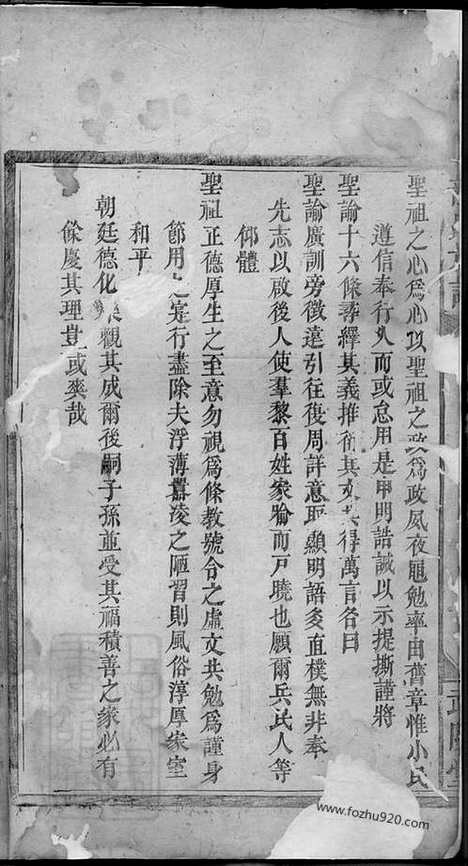 聖祖之心為心以聖祖之政為政夙夜黽勉率由舊章惟小民
遵信奉行久而或怠用是申明誥誡以示提撕謹將
聖諭十六條尋繹其義推衍其文共得萬言名曰
聖諭廣訓旁徵遠引往復周詳意取顯明語多直樸無非奉
先志以啟後人使羣黎百姓家喻而戶曉也願爾兵民人等
仰體
聖祖正德厚生之至意勿視為條教號令之虛文共勉為謹身
節用之庶行盡除夫浮薄囂淩之陋習則風俗淳厚家室
和平
朝廷德化樂觀其成爾後嗣子孫並受其福積善之家必有
餘慶其理豈或爽哉
www.fozhu920.com